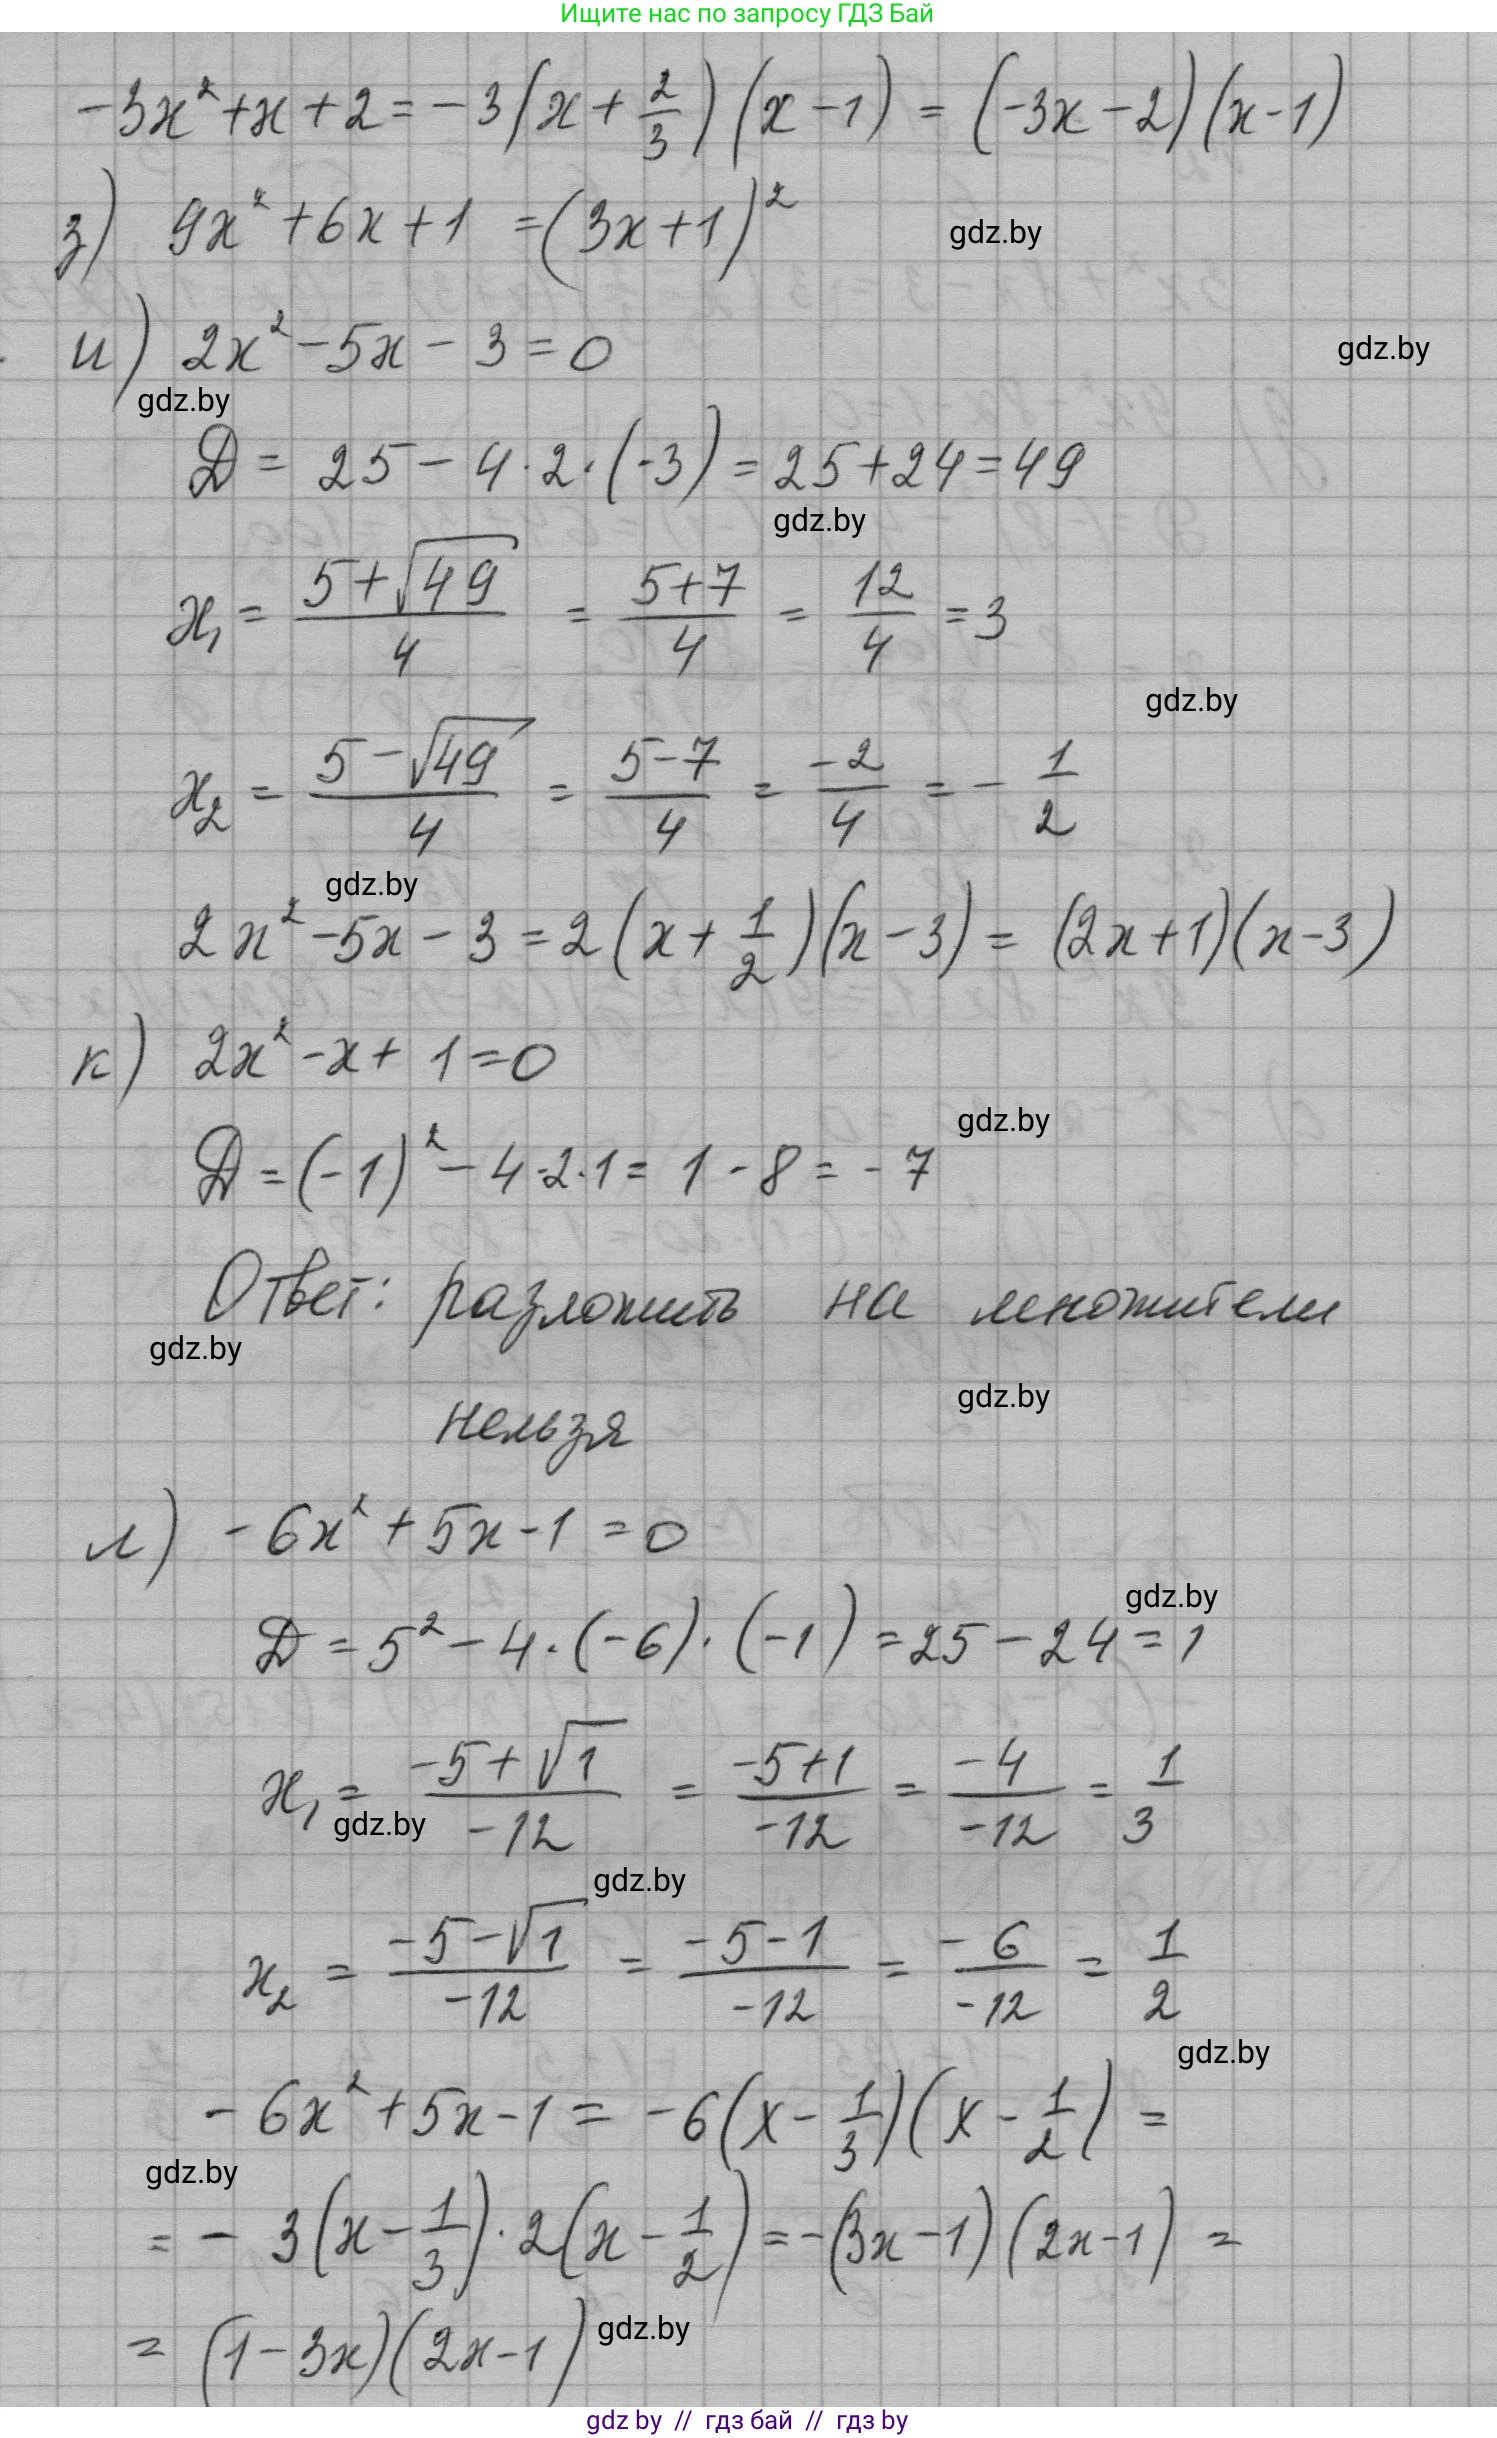 Ищите нас по запросу ГДЗ Бай
-3x² + x + 2 = -3(x + 2/3)(x - 1) = (-3x - 2)(x - 1)
з) 9x² + 6x + 1 = (3x + 1)²
gdz.by
и) 2x² - 5x - 3 = 0
gdz.by
gdz.by
D = 25 - 4 · 2 · (-3) = 25 + 24 = 49
gdz.by
x₁ = (5 + √49)/4 = (5 + 7)/4 = 12/4 = 3
gdz.by
x₂ = (5 - √49)/4 = (5 - 7)/4 = -2/4 = -1/2
gdz.by
2x² - 5x - 3 = 2(x + 1/2)(x - 3) = (2x + 1)(x - 3)
к) 2x² - x + 1 = 0
gdz.by
D = (-1)² - 4 · 2 · 1 = 1 - 8 = -7
Ответ: разложить на множители
gdz.by
gdz.by
нельзя
л) -6x² + 5x - 1 = 0
gdz.by
D = 5² - 4 · (-6) · (-1) = 25 - 24 = 1
x₁ = (-5 + √1)/-12 = (-5 + 1)/-12 = -4/-12 = 1/3
gdz.by
gdz.by
x₂ = (-5 - √1)/-12 = (-5 - 1)/-12 = -6/-12 = 1/2
gdz.by
-6x² + 5x - 1 = -6(x - 1/3)(x - 1/2) =
gdz.by
= -3(x - 1/3) · 2(x - 1/2) = -(3x - 1)(2x - 1) =
gdz.by
= (1 - 3x)(2x - 1)
gdz by // гдз бай // гдз by